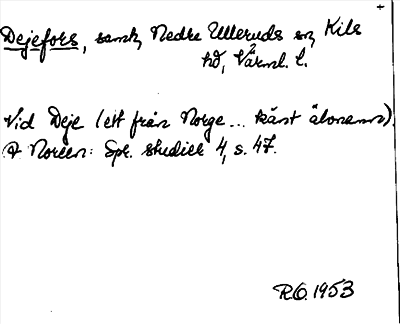 +
Dejefors, samh, Nedre Ulleruds sn, Kils
hd, Värml. l.
Vid Deje (ett från Norge... känt älvnamn).
A Noreen: Spr. studier 4, s. 47.
R.O. 1953